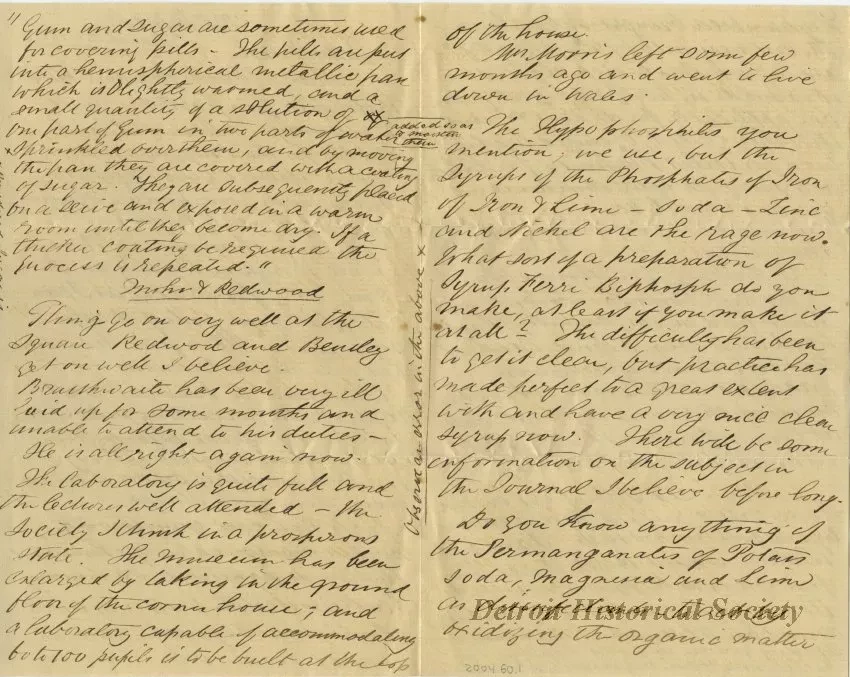 "Gum and Sugar are sometimes used
for covering pills - The pills are put
into a hemispherical metallic pan
which is slightly warmed, and a
small quantity of a solution of xx
one part of Gum in two parts of water
added so as
to moisten
them
x sprinkled over them, and by moving
the pan they are covered with a coating
of sugar. They are subsequently placed
on a sieve and exposed in a warm
room until they become dry. If a
thicker coating be required the
process is repeated."
Mohr & Redwood
Things go on very well at the
Square Redwood and Bentley
get on well I believe.
Braithwaite has been very ill
laid up for some months and
unable to attend to his duties -
He is all right again now.
The laboratory is quite full and
the lectures well attended - the
Society I think in a prosperous
state. The museum has been
enlarged by taking in the ground
floor of the corner house; and
a laboratory capable of accommodating
60 to 100 pupils is to be built at the top
Observe an error in the above x
of the house.
Mr Morris left some few
months ago and went to live
down in Wales.
The Hypophosphites you
mention, we use, but the
Syrups of the Phosphates of Iron
of Iron & Lime - Soda - Zinc
and Nickel are the rage now.
What sort of a preparation of
Syrup Ferri Biphosph do you
make, at least if you make it
at all? The difficulty has been
to get it clear, but practice has
made perfect to a great extent
with and have a very nice clear
syrup now. There will be some
information on the subject in
the Journal I believe before long.
Do you know anything of
the Permanganates of Potass
Soda, Magnesia and Lime
as
oxidizing the organic matter
Detroit Historical Society
2004.60.1